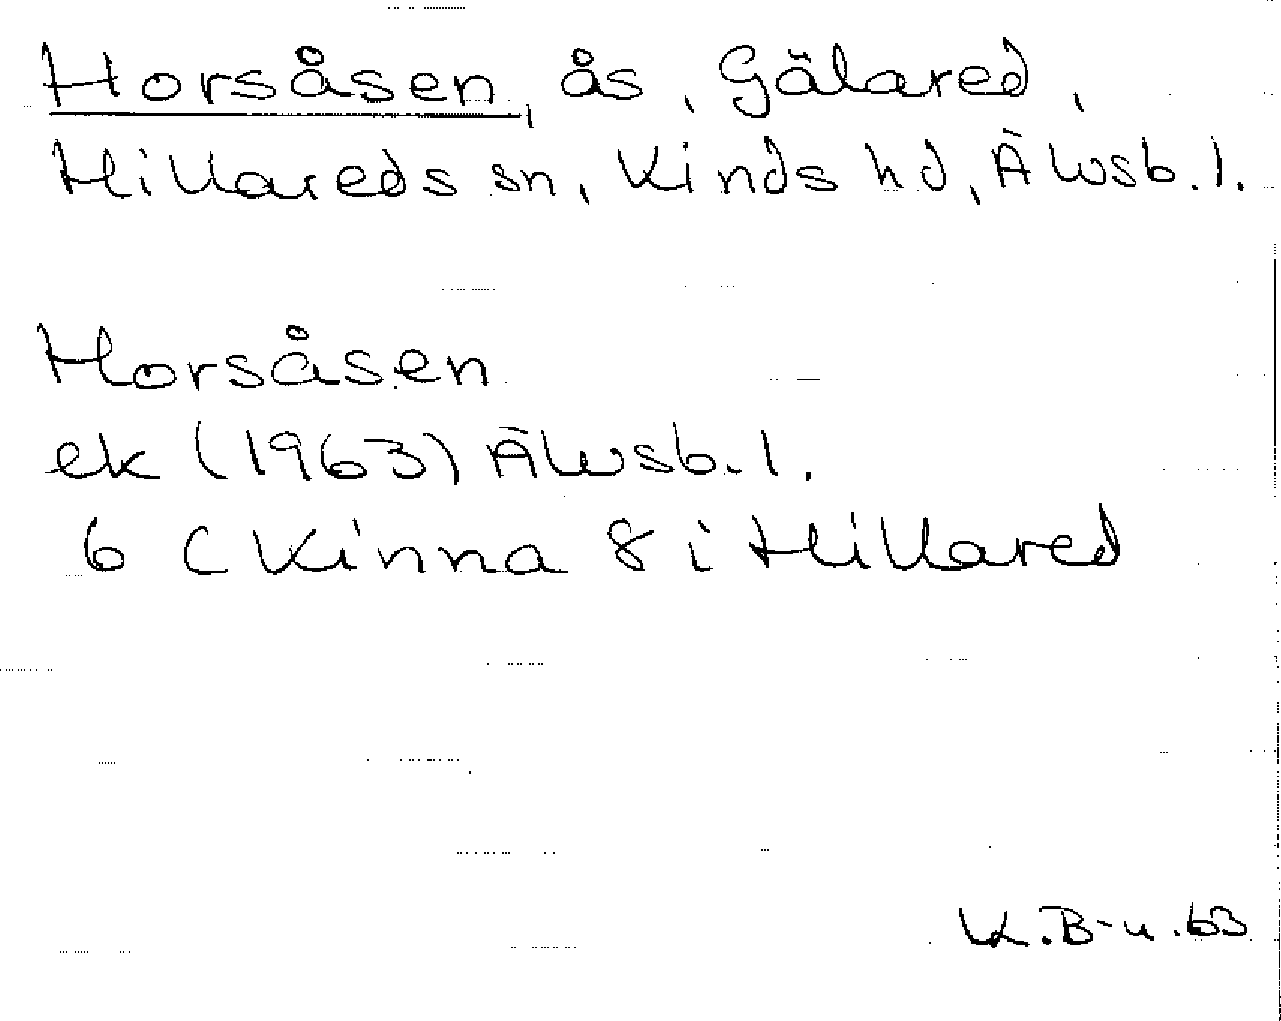 Horsåsen, ås, Gälared,
Hillareds sn, Kinds hd, Älvsb. l.
Horsåsen
ek (1963) Älvsb. l.
6 C Kinna 8 i Hillared
K.B-n.63